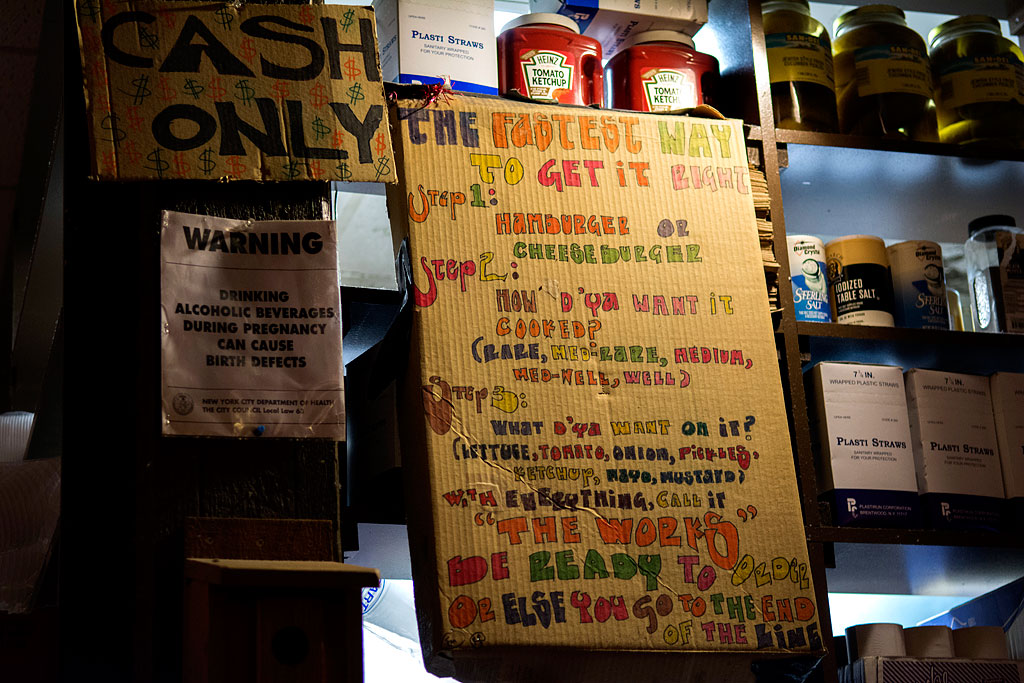 CASH
ONLY
PLASTI STRAWS
SANITARY WRAPPED
FOR YOUR PROTECTION
HEINZ
TOMATO
KETCHUP
HEINZ
TOMATO
KETCHUP
THE FASTEST WAY
TO GET IT RIGHT
STEP 1:
HAMBURGER OR
CHEESEBURGER
STEP 2:
HOW D'YA WANT IT
COOKED?
(RARE, MED-RARE, MEDIUM,
MED-WELL, WELL)
STEP 3:
WHAT D'YA WANT ON IT?
(LETTUCE, TOMATO, ONION, PICKLES,
KETCHUP, MAYO, MUSTARD)
WITH EVERYTHING, CALL IT
"THE WORKS"
BE READY TO ORDER
OR ELSE YOU GO TO THE END
OF THE LINE
WARNING
DRINKING
ALCOHOLIC BEVERAGES
DURING PREGNANCY
CAN CAUSE
BIRTH DEFECTS
NEW YORK CITY DEPARTMENT OF HEALTH
THE CITY COUNCIL Local Law 63
Diamond
Crystal
STERLING
SALT
IODIZED
TABLE SALT
STERLING
SALT
7 3/4 IN.
WRAPPED PLASTIC STRAWS
PLASTI STRAWS
SANITARY WRAPPED
FOR YOUR PROTECTION
PLASTIRUN CORPORATION
BRENTWOOD, N.Y.
WRAPPED PLASTIC STRAWS
PLASTI STRAWS
SANITARY WRAPPED
FOR YOUR PROTECTION